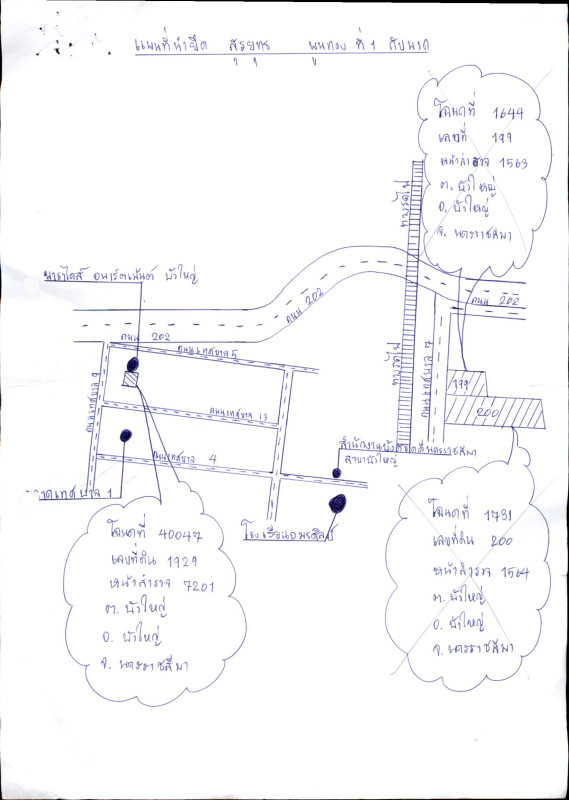 แผนที่นำยึด สุรยุทธ พูนทอง ที่ 1 กับพวก
โฉนดที่ 1644
เลขที่ 199
หน้าสำรวจ 1563
ต. บัวใหญ่
อ. บัวใหญ่
จ. นครราชสีมา
ทางรถไฟ
พาราไดส์ อพาร์ตเม้นต์ บัวใหญ่
ถนน 202
ถนน 202
ถนน 202
ถนนเทศบาล 5
ทางรถไฟ
ถนนเทศบาล 7
ถนนเทศบาล 9
199
200
ถนนเทศบาล 13
สำนักงานบังคับคดีนครราชสีมา
สาขาบัวใหญ่
ถนนเทศบาล 4
ตลาดเทศบาล 1
โรงเรียนอมรศิลป์
โฉนดที่ 40047
เลขที่ดิน 1929
หน้าสำรวจ 7201
ต. บัวใหญ่
อ. บัวใหญ่
จ. นครราชสีมา
โฉนดที่ 1731
เลขที่ดิน 200
หน้าสำรวจ 1564
ต. บัวใหญ่
อ. บัวใหญ่
จ. นครราชสีมา